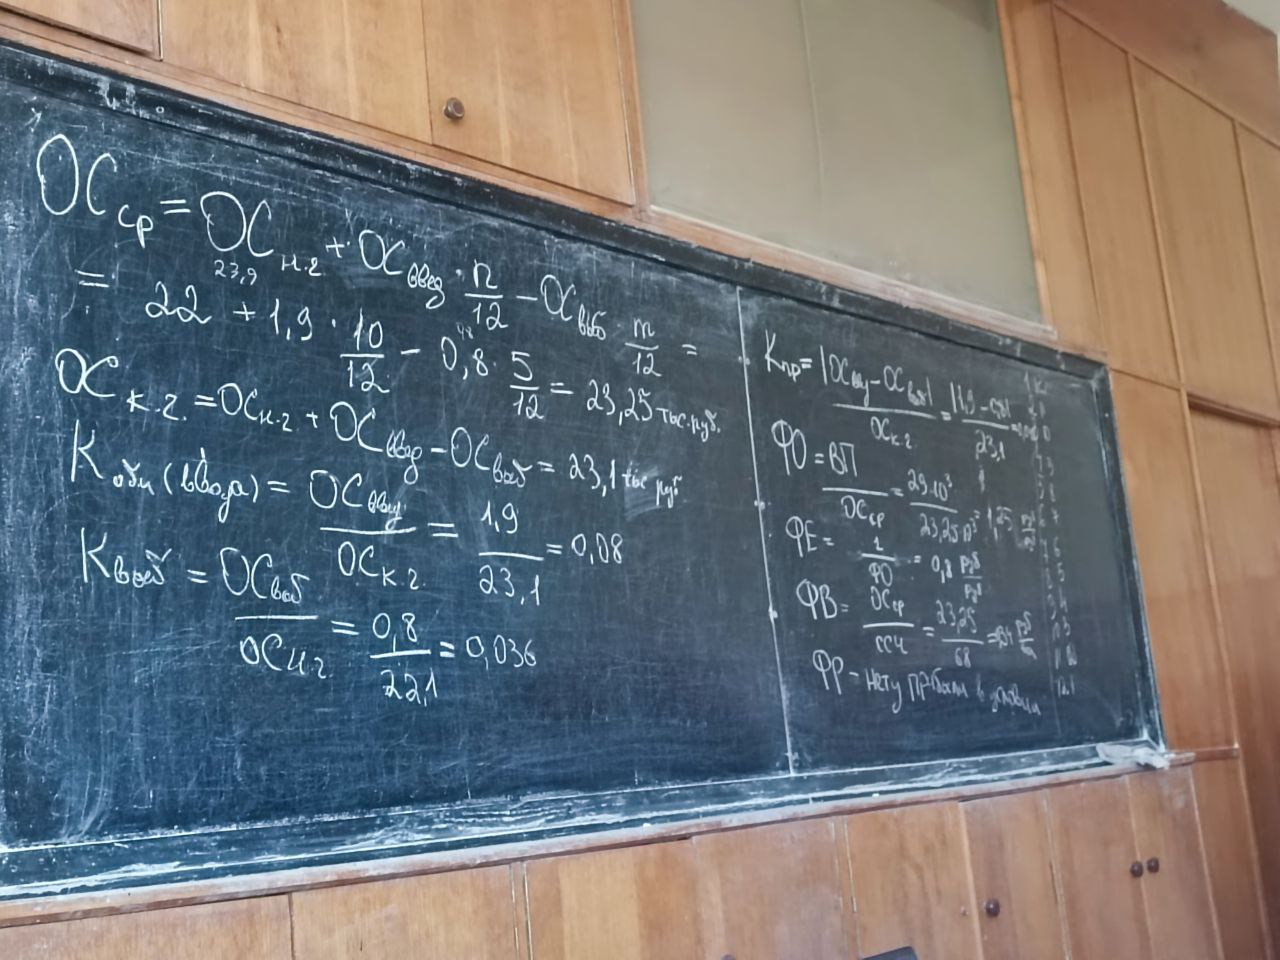 ОСср = ОСн.г + ОСввед · n/12 − ОСвыб m/12 =
23,9
= 22 + 1,9 · 10/12 − 0,8 · 5/12 = 23,25 тыс.руб.
ОС к.г. = ОСн.г + ОСввед − ОСвыб = 23,1 тыс руб.
К обн (ввода) = ОСввед/ОСк.г. = 1,9/23,1 = 0,08
Квыб = ОСвыб/ОСн.г = 0,8/22,1 = 0,036
Кпр = |ОСвв − ОСвыб|/ОСк.г. = |1,9 − 0,8|/23,1
ФО = ВП/ОСср = 29·10³/23,25·10³ = 1,25 руб
ФЕ = 1/ФО = 0,8 руб/руб
ФВ = ОСср/ССЧ = 23,25/68 = руб
ФР − нету прибыли в условии